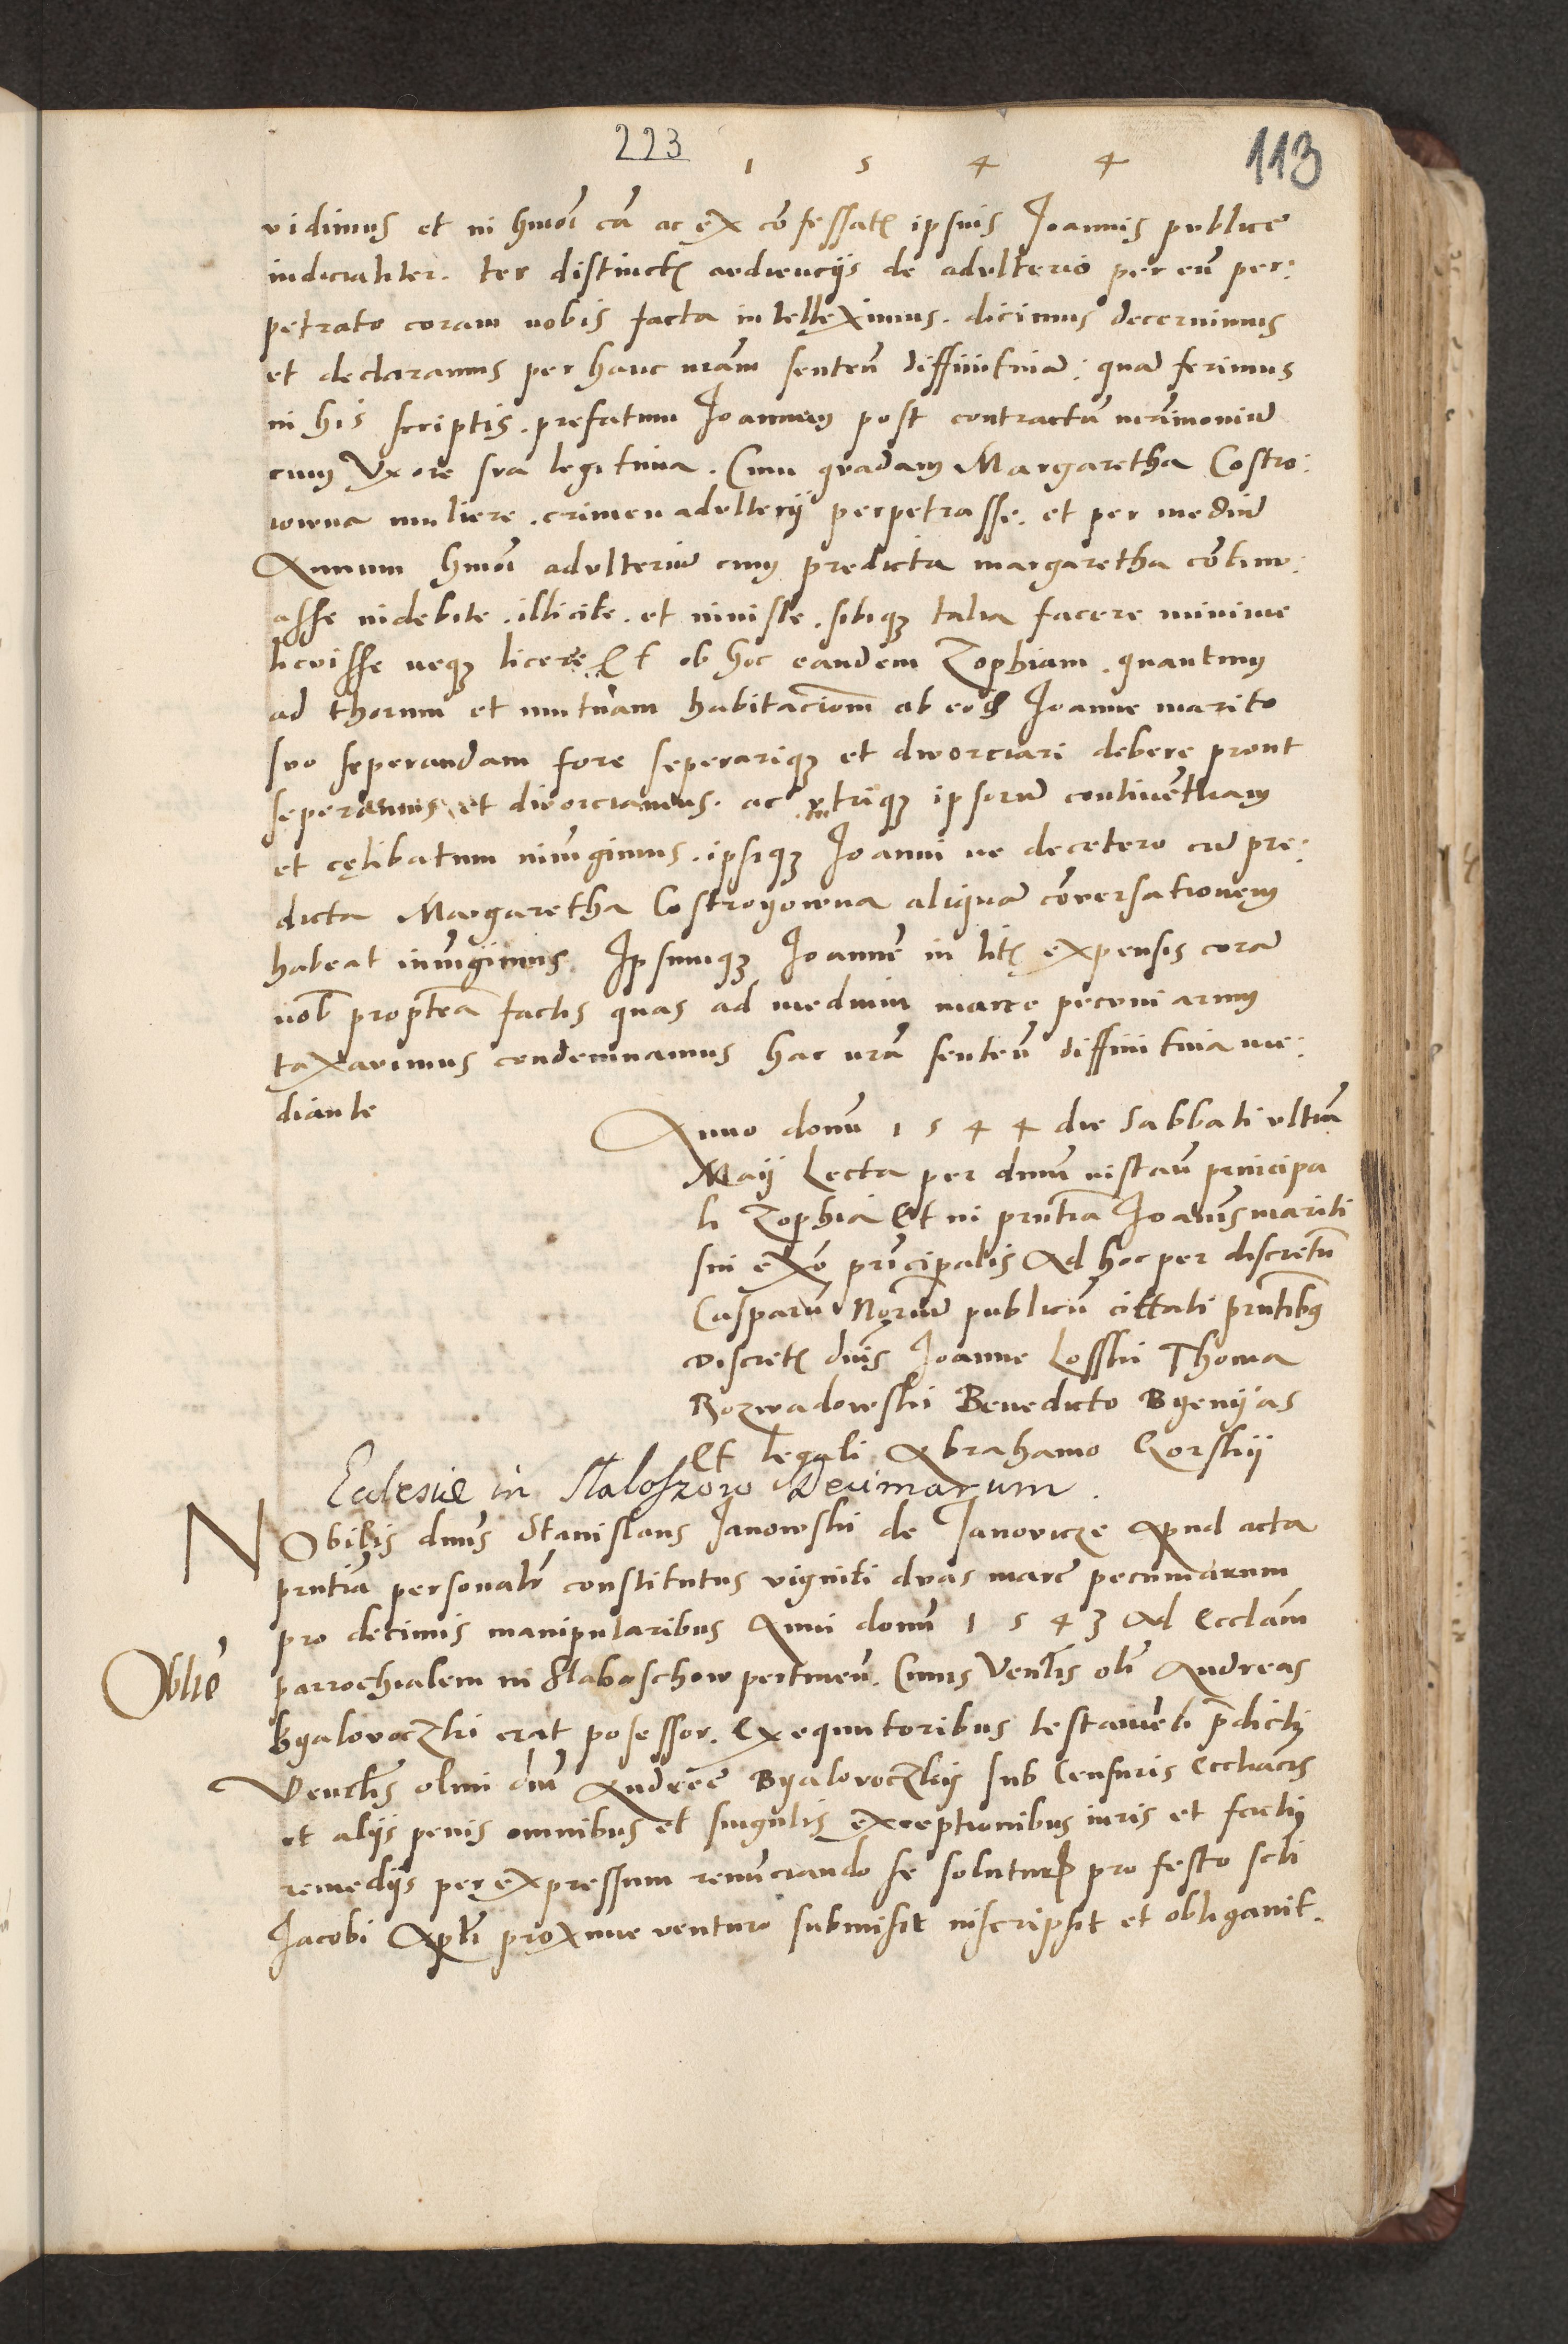 223
1 5 4 4
113
vidimus et in hmõi cã ac ex confessatꝭ ipsius Joannis publice
iudicialiter. ter distinctꝭ audienciis de adulterio per eũ per:
petrato coram nobis facta intelleximus. dicimus decernimus
et declaramus per hanc nrãm senteñ diffinitiuã: quã ferimus
in his scriptis. prefatum Joannem post contractũ mrimoniũ
cum Uxore sua legitima. Cum quadam Margaretha Costro:
iowna muliere. crimen adulterij perpetrasse. et per mediũ
Annum hmõi adulteriũ cum predicta margaretha côtinu:
asse indebite. illicite. et iniuste. sibiqꝫ talia facere minime
licuisse neqꝫ licere Et ob hoc eandem Zophiam. quantum
ad thorum et mutuam habitacionẽ ab eodẽ Joanne marito
suo seperandam fore seperariqꝫ et diuorciari debere prout
seperamus et diuorciamus. ac utriqꝫ ipsorũ continẽtiam
et cęlibatum iniũgimus. ipsiqꝫ Joanni ne decetero cũ pre:
dicta Margaretha Costroyowna aliquã cõversationem
habeat iniũgimus Ipsumqꝫ Joannẽ in litꝭ expensis corã
nob̃ propterea factis quas ad mediũ marce pecuniarum
taxavimus condemnamus hac nrã senteñ diffinitiua me:
diante
Anno domĩ 1 5 4 4 die Sabbati ultiã
Maij Lecta per dnũm instañ principa
li Zophia Et in pñtia Joannis mariti
sui exõ principalis Ad hoc per discretũ
Casparũ Noriũ publicũ cittati pñtibus
Discretꝭ dnis Joanne Losski Thoma
Rozwadowski Benedicto Byenyas
Et legali Abrahamo Gorskij
Ecclesiæ in Slaboszow Decimarum.
NObilis dnus Stanislaus Janowski de Janovicze Apud acta
pñtia personalr̃ constitutus viginti duas marc̃ pecuniarum
pro decimis manipularibus Anni domĩ 1 5 4 3 Ad Ecclãm
Obliẽ
parrochialem in Slaboschow pertineñ. Cuius Venlis olĩ Andreas
Byalovoczki erat posessor. Exequutoribus testamẽti p̃dicti
Venlis olim dnĩ Andreæ Byalovoczkij sub Censuris Eccliacis
et aliis penis omnibus et singulis exceptionibus iuris et facti
remediis per expressum renũciando se soluturũ pro festo scti
Jacobi Apli proxime venturo submisit inscripsit et obligauit.